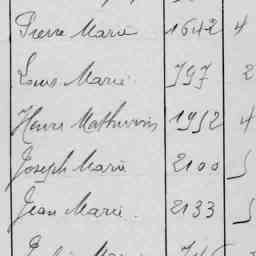 Pierre Marie 1642 4
Louis Marie 797 2
Henri Mathurin 1952 4
Joseph Marie 2100 5
Jean Marie. 2133 5